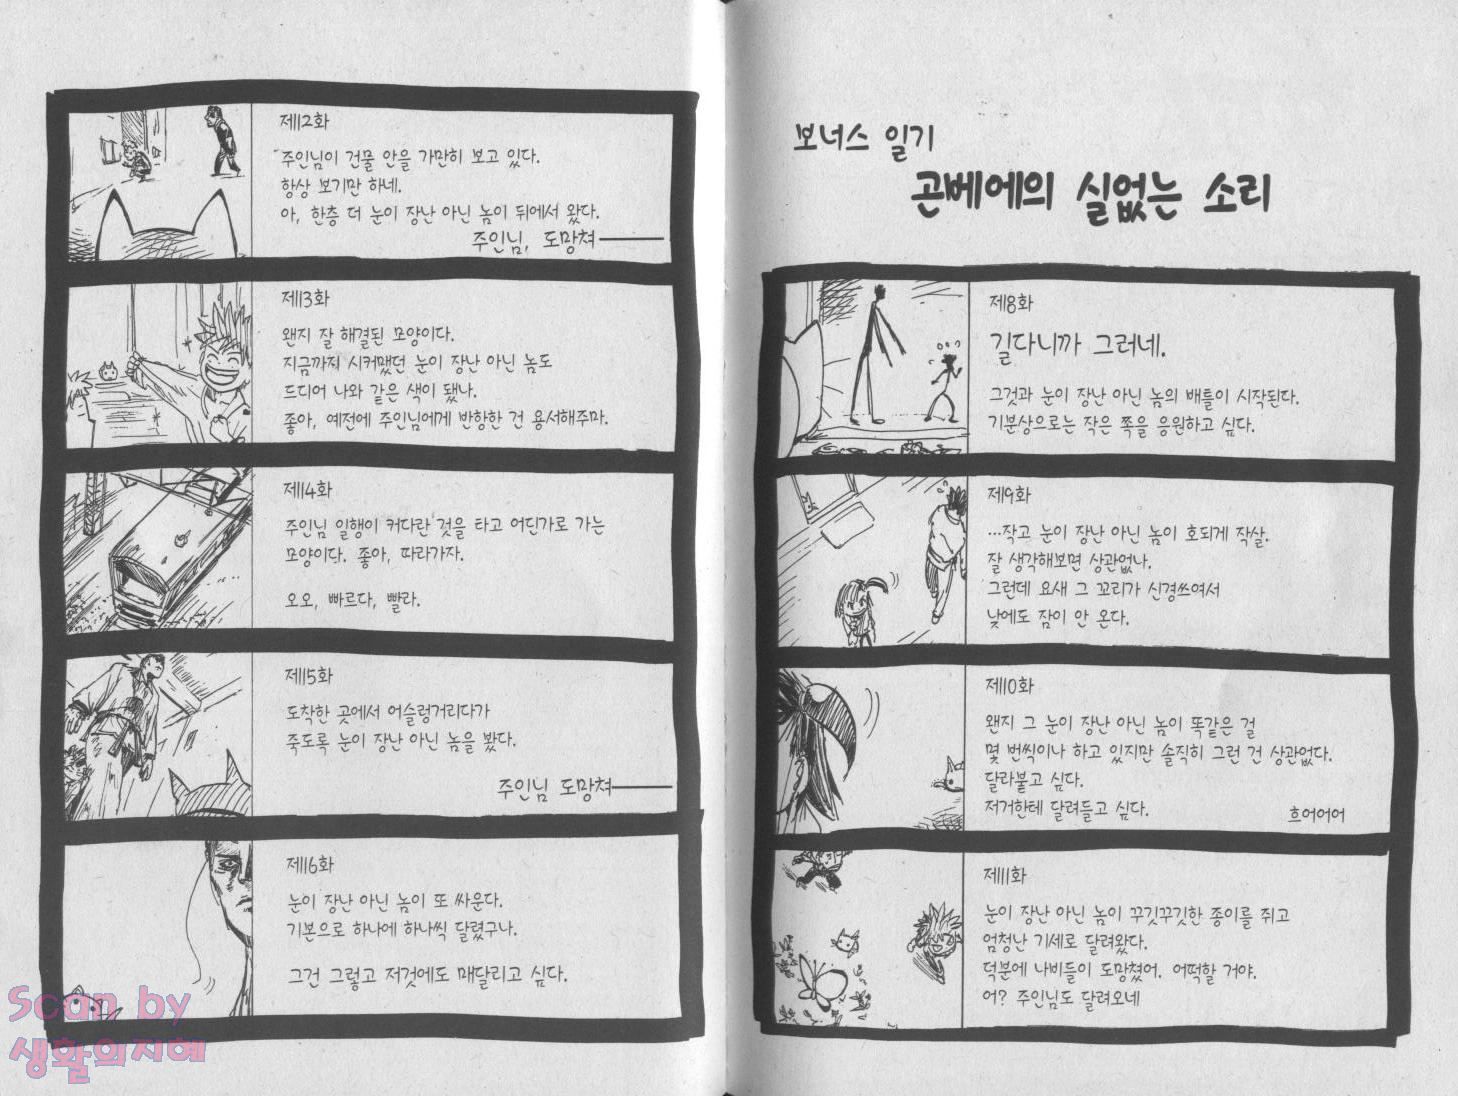 보너스 일기
곤베에의 실없는 소리
제8화
길다니까 그러네.
그것과 눈이 장난 아닌 놈의 배틀이 시작된다.
기분상으로는 작은 쪽을 응원하고 싶다.
제9화
…작고 눈이 장난 아닌 놈이 호되게 작살.
잘 생각해보면 상관없나.
그런데 요새 그 꼬리가 신경쓰여서
낮에도 잠이 안 온다.
제10화
왠지 그 눈이 장난 아닌 놈이 똑같은 걸
몇 번씩이나 하고 있지만 솔직히 그런 건 상관없다.
달라붙고 싶다.
저거한테 달려들고 싶다.
흐어어어
제11화
눈이 장난 아닌 놈이 꾸깃꾸깃한 종이를 쥐고
엄청난 기세로 달려왔다.
덕분에 나비들이 도망쳤어. 어떡할 거야.
어? 주인님도 달려오네
제12화
주인님이 건물 안을 가만히 보고 있다.
항상 보기만 하네.
아, 한층 더 눈이 장난 아닌 놈이 뒤에서 왔다.
주인님, 도망쳐───
제13화
왠지 잘 해결된 모양이다.
지금까지 시커맸던 눈이 장난 아닌 놈도
드디어 나와 같은 색이 됐나.
좋아, 예전에 주인님에게 반항한 건 용서해주마.
제14화
주인님 일행이 커다란 것을 타고 어딘가로 가는
모양이다. 좋아, 따라가자.
오오, 빠르다, 빨라.
제15화
도착한 곳에서 어슬렁거리다가
죽도록 눈이 장난 아닌 놈을 봤다.
주인님 도망쳐───
제16화
눈이 장난 아닌 놈이 또 싸운다.
기본으로 하나에 하나씩 달렸구나.
그건 그렇고 저것에도 매달리고 싶다.
Scan by
생활의지혜